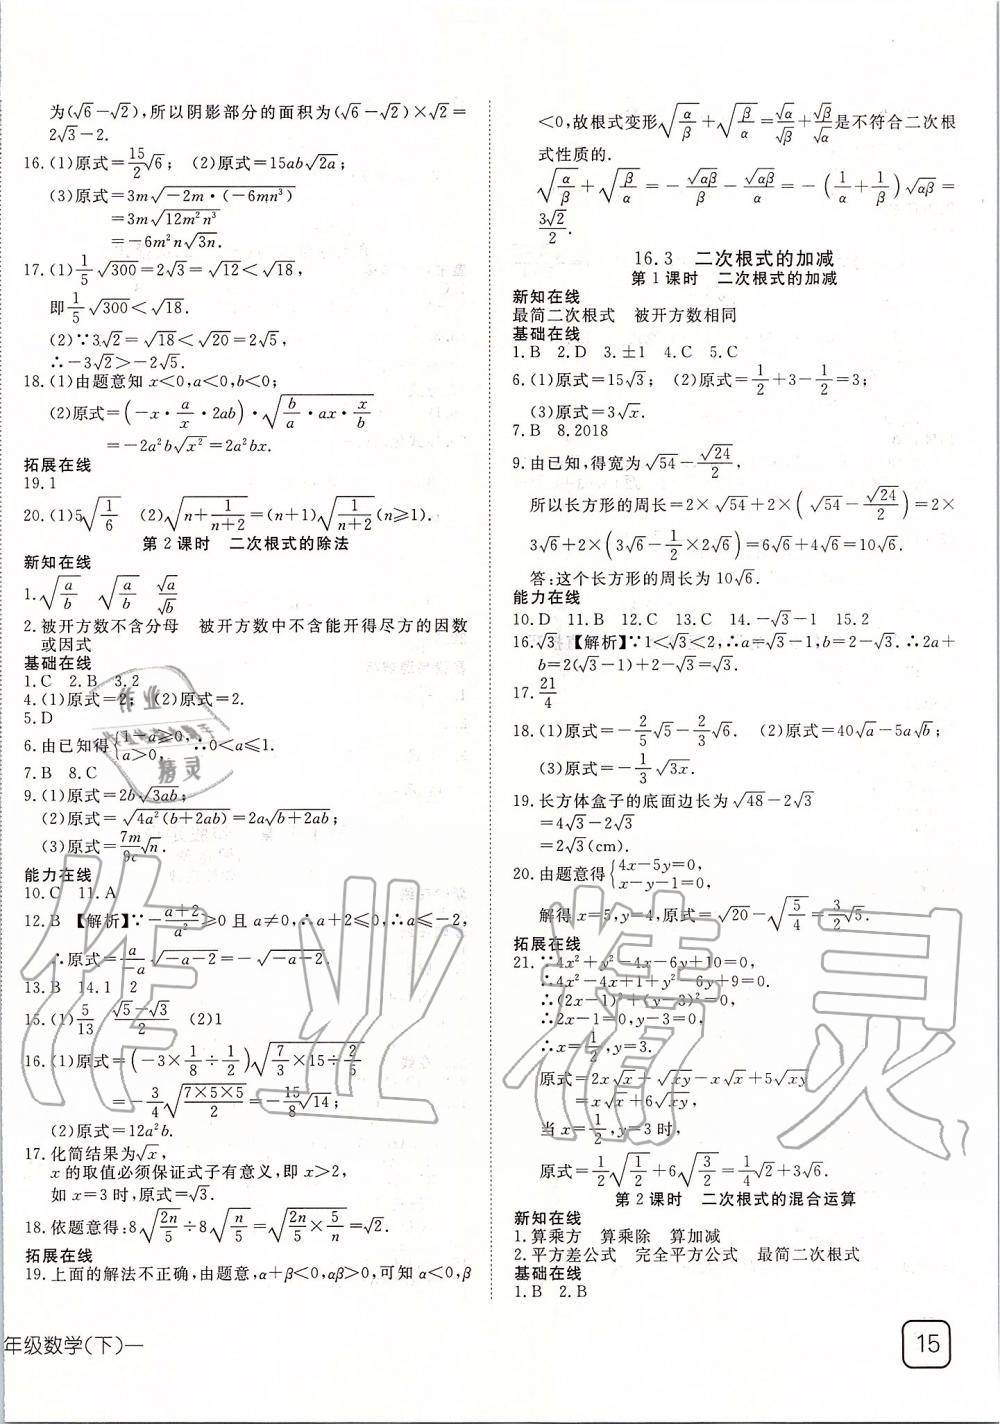 为(√6-√2),所以阴影部分的面积为(√6-√2)×√2=
2√3-2.
16.(1)原式=15/2√6; (2)原式=15ab√(2a);
(3)原式=3m√(-2m·(-6mn³))
=3m√(12m²n³)
=-6m²n√(3n).
17.(1)1/5√300=2√3=√12<√18,
即1/5√300<√18.
(2)∵3√2=√18<√20=2√5,
∴-3√2>-2√5.
18.(1)由题意知x<0,a<0,b<0;
(2)原式=(-x·a/x·2ab)·√(b/a·ax·x/b)
=-2a²b√(x²)=2a²bx.
拓展在线
19.1
20.(1)5√(1/6) (2)√(n+1/(n+2))=(n+1)√(1/(n+2))(n≥1).
第2课时 二次根式的除法
新知在线
1.√(a/b) √(a/b) √a/√b
2.被开方数不含分母 被开方数中不含能开得尽方的因数
或因式
基础在线
1.C 2.B 3.2
4.(1)原式=2; (2)原式=2.
5.D
6.由已知得{1-a≥0, a>0, ∴0<a≤1.
7.B 8.C
9.(1)原式=2b√(3ab);
(2)原式=√(4a²(b+2ab))=2a√(b+2ab);
(3)原式=7m/9c√n.
能力在线
10.C 11.A
12.B 【解析】∵-(a+2)/a²≥0且a≠0,∴a+2≤0,∴a≤-2,
∴原式=a/-a√(-a-2)=-√(-a-2).
13.B 14.1 2
15.(1)5/13 (√5-√3)/2 (2)1
16.(1)原式=(-3×1/8÷1/2)√(7/3×15÷2/5)
=-3/4√((7×5×5)/2)=-15/8√14;
(2)原式=12a²b.
17.化简结果为√x,
x的取值必须保证式子有意义,即x>2,
如x=3时,原式=√3.
18.依题意得:8√(2n/5)÷8√(n/5)=√(2n/5×5/n)=√2.
拓展在线
19.上面的解法不正确,由题意,α+β<0,αβ>0,可知α<0,β
<0,故根式变形√(α/β)+√(β/α)=√α/√β+√β/√α是不符合二次根
式性质的.
√(α/β)+√(β/α)=-√(αβ)/β-√(αβ)/α=-(1/α+1/β)√(αβ)=
3√2/2.
16.3 二次根式的加减
第1课时 二次根式的加减
新知在线
最简二次根式 被开方数相同
基础在线
1.B 2.D 3.±1 4.C 5.C
6.(1)原式=15√3; (2)原式=1/2+3-1/2=3;
(3)原式=3√x.
7.B 8.2018
9.由已知,得宽为√54-√24/2,
所以长方形的周长=2×√54+2×(√54-√24/2)=2×
3√6+2×(3√6-1/2×2√6)=6√6+4√6=10√6.
答:这个长方形的周长为10√6.
能力在线
10.D 11.B 12.C 13.C 14.-√3-1 15.2
16.√3 【解析】∵1<√3<2,∴a=√3-1,b=2-√3.∴2a+
b=2(√3-1)+2-√3=√3.
17.21/4
18.(1)原式=-2/5√5-2/3√6. (2)原式=40√a-5a√b;
(3)原式=-1/3√(3x).
19.长方体盒子的底面边长为√48-2√3
=4√3-2√3
=2√3(cm).
20.由题意得{4x-5y=0, x-y-1=0,
解得x=5,y=4,原式=√20-√(5/4)=3/2√5.
拓展在线
21.∵4x²+y²-4x-6y+10=0,
∴4x²-4x+1+y²-6y+9=0.
∴(2x-1)²+(y-3)²=0.
∴2x-1=0,y-3=0.
∴x=1/2,y=3.
原式=2x√x+√(xy)-x√x+5√(xy)
=x√x+6√(xy).
当x=1/2,y=3时,
原式=1/2√(1/2)+6√(3/2)=1/4√2+3√6.
第2课时 二次根式的混合运算
新知在线
1.算乘方 算乘除 算加减
2.平方差公式 完全平方公式 最简二次根式
基础在线
1.B 2.B
年级数学(下)一
15
作业精灵